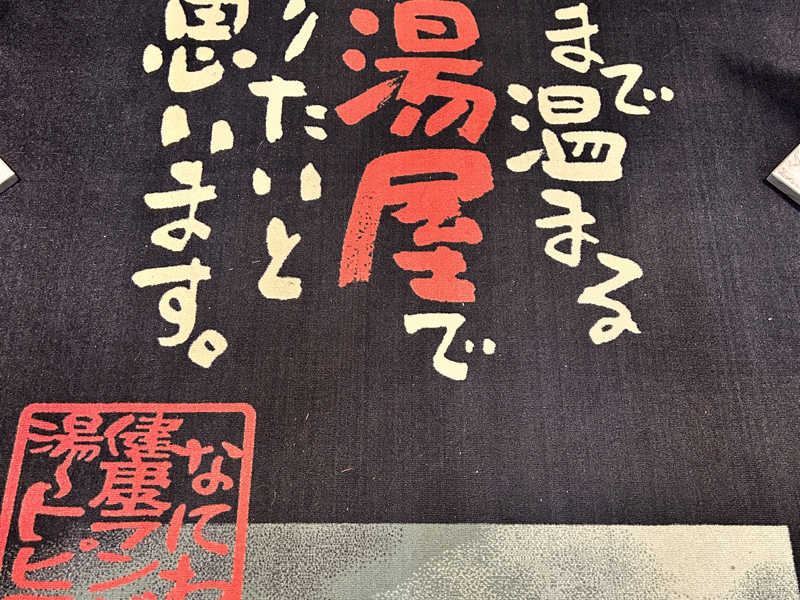 まで温まる
湯屋で
りたいと
思います。
なにわ
健康ラン
湯〜トピ